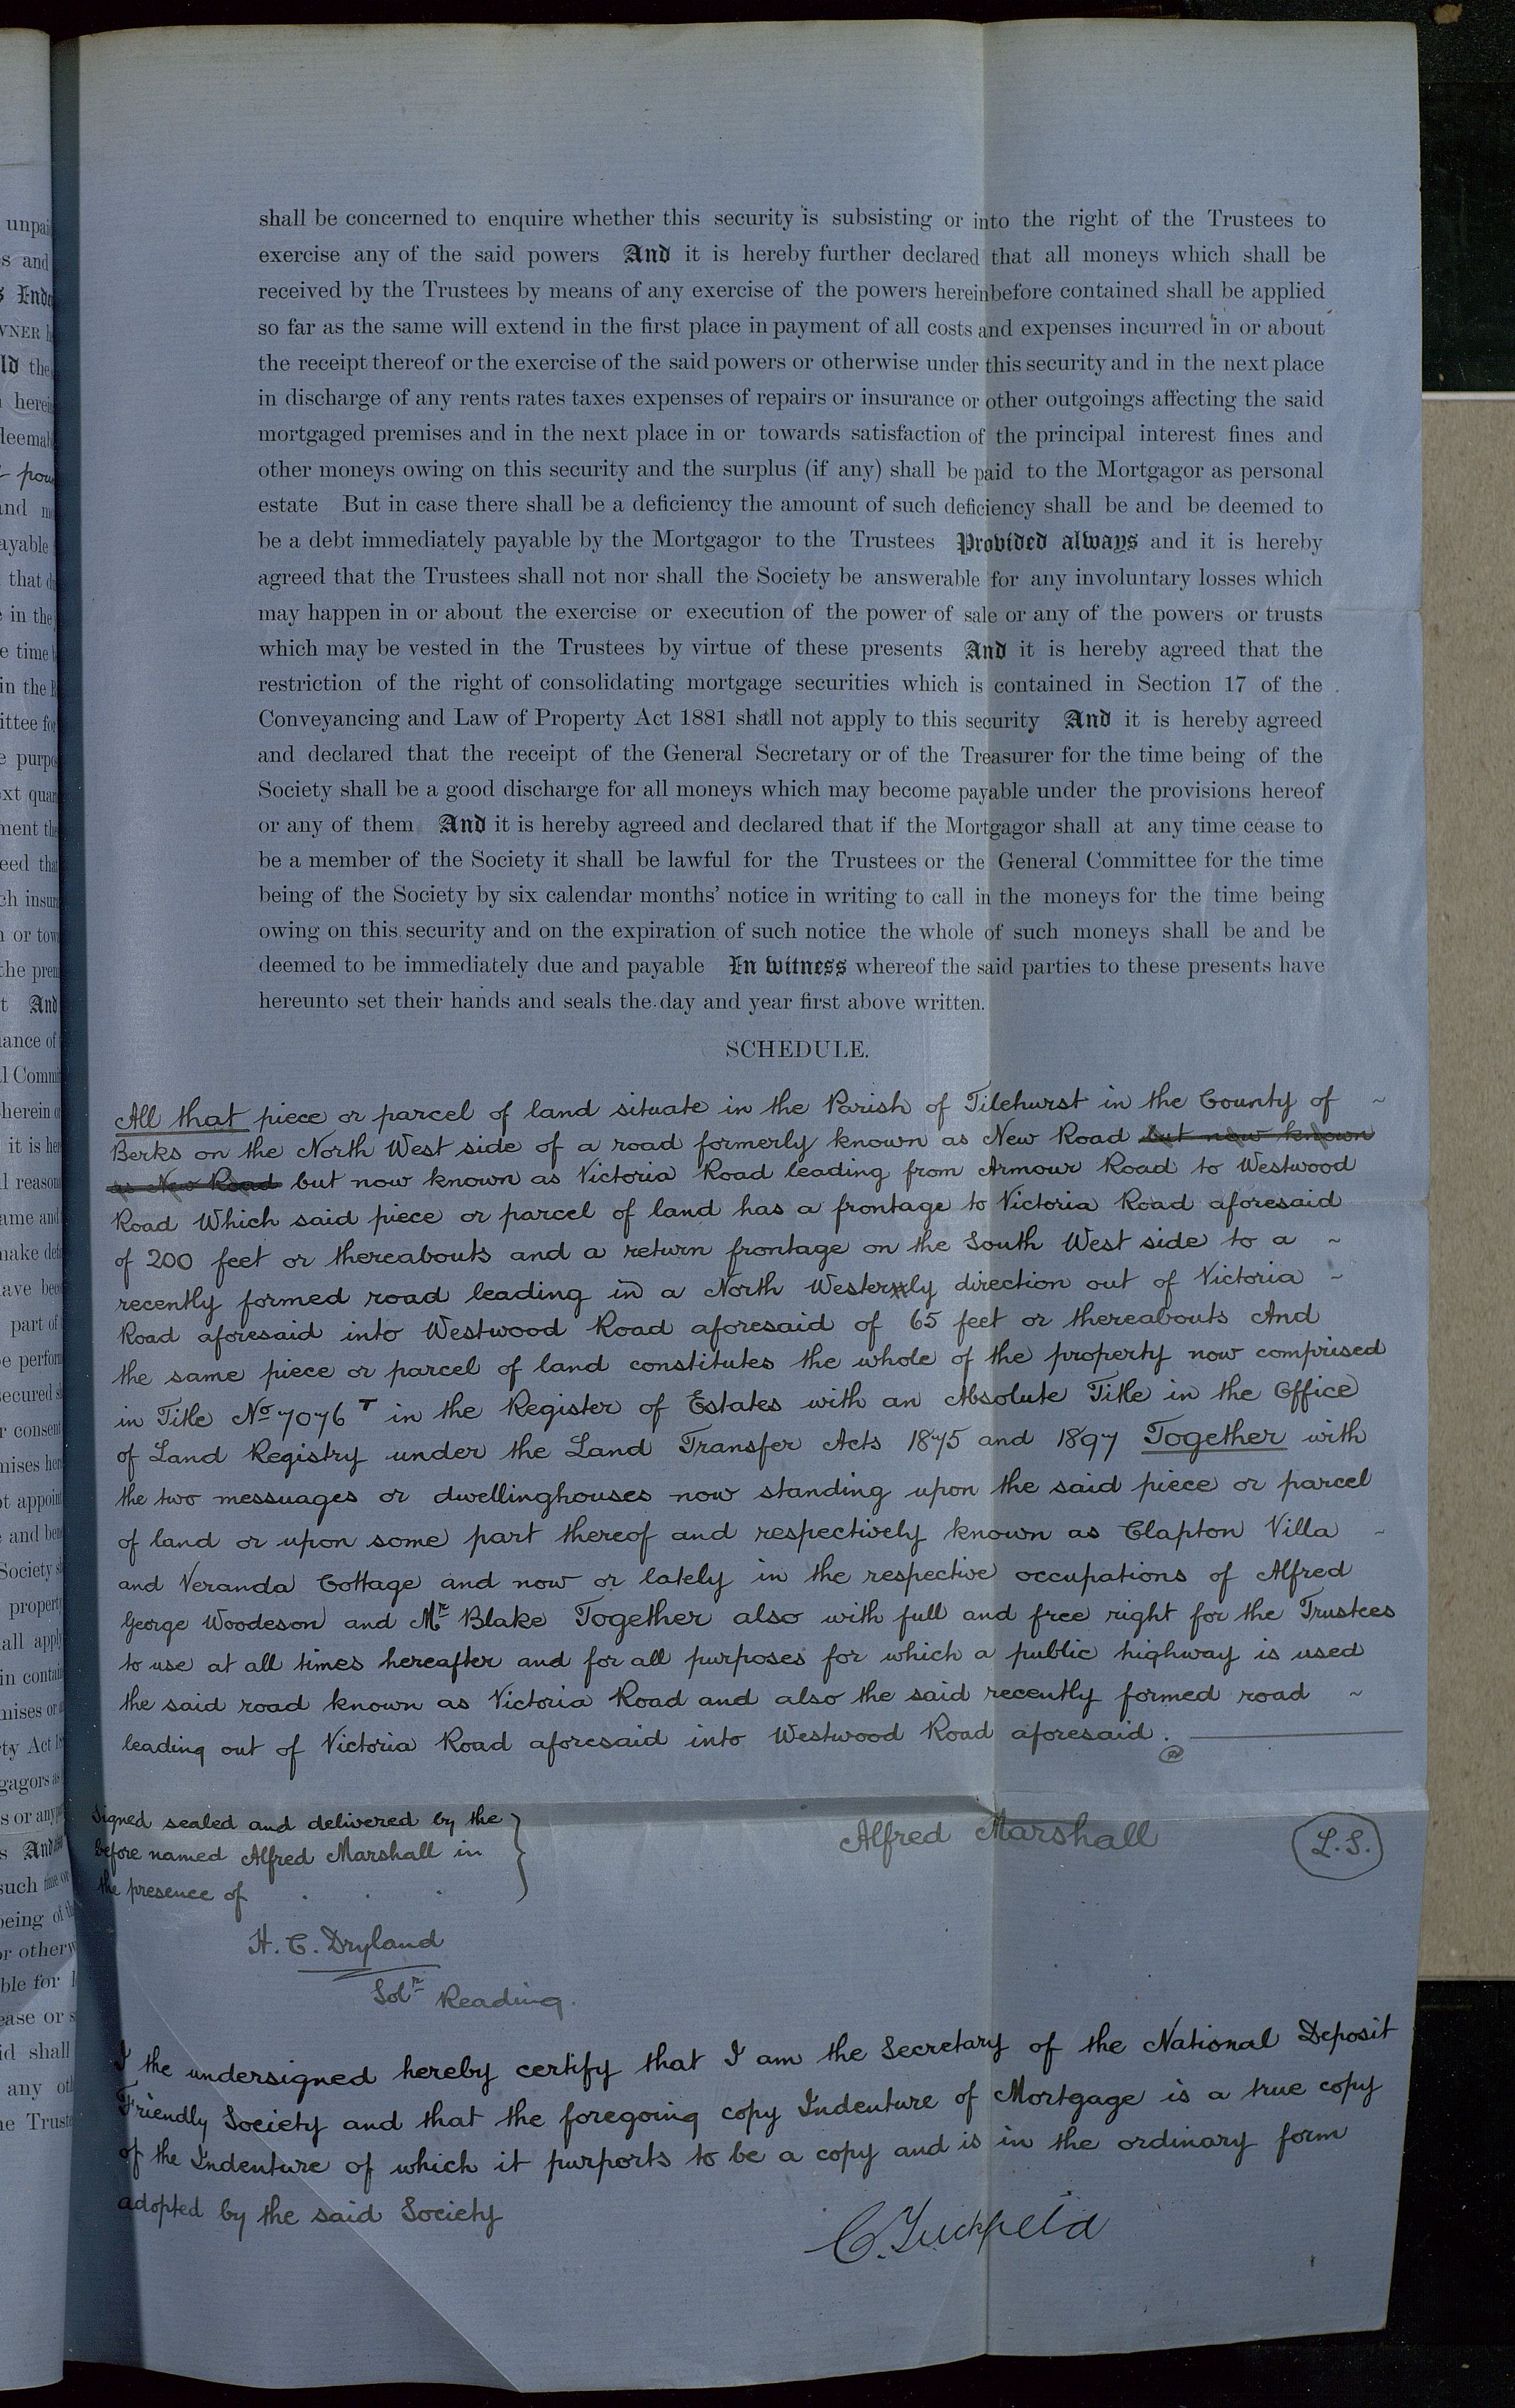 shall be concerned to enquire whether this security is subsisting or into the right of the Trustees to
exercise any of the said powers And it is hereby further declared that all moneys which shall be
received by the Trustees by means of any exercise of the powers hereinbefore contained shall be applied
so far as the same will extend in the first place in payment of all costs and expenses incurred in or about
the receipt thereof or the exercise of the said powers or otherwise under this security and in the next place
in discharge of any rents rates taxes expenses of repairs or insurance or other outgoings affecting the said
mortgaged premises and in the next place in or towards satisfaction of the principal interest fines and
other moneys owing on this security and the surplus (if any) shall be paid to the Mortgagor as personal
estate But in case there shall be a deficiency the amount of such deficiency shall be and be deemed to
be a debt immediately payable by the Mortgagor to the Trustees Provided always and it is hereby
agreed that the Trustees shall not nor shall the Society be answerable for any involuntary losses which
may happen in or about the exercise or execution of the power of sale or any of the powers or trusts
which may be vested in the Trustees by virtue of these presents And it is hereby agreed that the
restriction of the right of consolidating mortgage securities which is contained in Section 17 of the
Conveyancing and Law of Property Act 1881 shall not apply to this security And it is hereby agreed
and declared that the receipt of the General Secretary or of the Treasurer for the time being of the
Society shall be a good discharge for all moneys which may become payable under the provisions hereof
or any of them And it is hereby agreed and declared that if the Mortgagor shall at any time cease to
be a member of the Society it shall be lawful for the Trustees or the General Committee for the time
being of the Society by six calendar months' notice in writing to call in the moneys for the time being
owing on this security and on the expiration of such notice the whole of such moneys shall be and be
deemed to be immediately due and payable In witness whereof the said parties to these presents have
hereunto set their hands and seals the day and year first above written.
SCHEDULE.
All that piece or parcel of land situate in the Parish of Tilehurst in the County of ~
Berks on the North West side of a road formerly known as New Road but now known
as New Road but now known as Victoria Road leading from Armour Road to Westwood
Road Which said piece or parcel of land has a frontage to Victoria Road aforesaid
of 200 feet or thereabouts and a return frontage on the South West side to a ~
recently formed road leading in a North Westerly direction out of Victoria ~
Road aforesaid into Westwood Road aforesaid of 65 feet or thereabouts And
the same piece or parcel of land constitutes the whole of the property now comprised
in Title No 7076 T in the Register of Estates with an Absolute Title in the Office
of Land Registry under the Land Transfer Acts 1875 and 1897 Together with
the two messuages or dwellinghouses now standing upon the said piece or parcel
of land or upon some part thereof and respectively known as Clapton Villa ~
and Veranda Cottage and now or lately in the respective occupations of Alfred
George Woodeson and Mr Blake Together also with full and free right for the Trustees
to use at all times hereafter and for all purposes for which a public highway is used
the said road known as Victoria Road and also the said recently formed road ~
leading out of Victoria Road aforesaid into Westwood Road aforesaid.
Signed sealed and delivered by the
before named Alfred Marshall in
the presence of
Alfred Marshall
L.S.
H. C. Dryland
Solr Reading.
I the undersigned hereby certify that I am the Secretary of the National Deposit
Friendly Society and that the foregoing copy Indenture of Mortgage is a true copy
of the Indenture of which it purports to be a copy and is in the ordinary form
adopted by the said Society